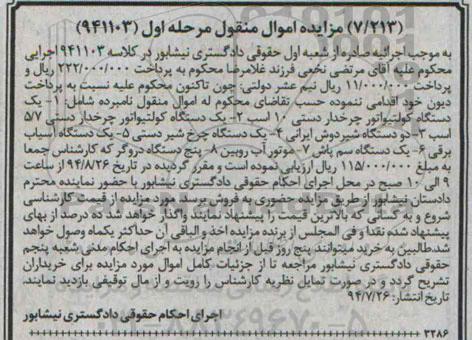 (۷/۲۱۳) مزایده اموال منقول مرحله اول (۹۴۱۱۰۳)
به موجب اجرائیه صادره از شعبه اول حقوقی دادگستری نیشابور در کلاسه ۹۴۱۱۰۳ اجرایی
محکوم علیه آقای مرتضی نخعی فرزند غلامرضا محکوم به پرداخت ۲۲۲/۰۰۰/۰۰۰ ریال و
پرداخت ۱۱/۰۰۰/۰۰۰ ریال نیم عشر دولتی: چون تاکنون محکوم علیه نسبت به پرداخت
دیون خود اقدامی ننموده حسب تقاضای محکوم له اموال منقول نامبرده شامل: ۱- یک
دستگاه کولتیواتور چرخدار دستی ۱۰ اسب ۲- یک دستگاه کولتیواتور چرخدار دستی ۵/۷
اسب ۳- دو دستگاه شیردوش ایرانی ۴- یک دستگاه چرخ شیر دستی ۵- یک دستگاه آسیاب
برقی ۶- یک دستگاه سم پاش ۷- موتور آب روبین ۸- پنج دستگاه دروگر که کارشناس جمعا
به مبلغ ۱۱۵/۰۰۰/۰۰۰ ریال ارزیابی نموده است و مقرر گردیده در تاریخ ۹۴/۸/۲۶ از ساعت
۹ الی ۱۰ صبح در محل اجرای احکام حقوقی دادگستری نیشابور با حضور نماینده محترم
دادستان نیشابور از طریق مزایده حضوری به فروش برسد. مورد مزایده از قیمت کارشناسی
شروع و به کسانی که بالاترین قیمت را پیشنهاد نمایند واگذار خواهد شد ده درصد از بهای
پیشنهاد شده نقدا و فی المجلس از برنده مزایده اخذ و الباقی آن حداکثر یکماه وصول خواهد
شد. طالبین به خرید میتوانند پنج روز قبل از انجام مزایده به اجرای احکام مدنی شعبه پنجم
حقوقی دادگستری نیشابور مراجعه تا از جزئیات کامل اموال مورد مزایده برای خریداران
تشریح گردد و در صورت تمایل نظریه کارشناس را رویت و از مال توقیفی بازدید نمایند.
تاریخ انتشار: ۹۴/۷/۲۶
اجرای احکام حقوقی دادگستری نیشابور
۳۲۸۶
۰۲۱-۸۸۳۴۹۶۷۰-۵